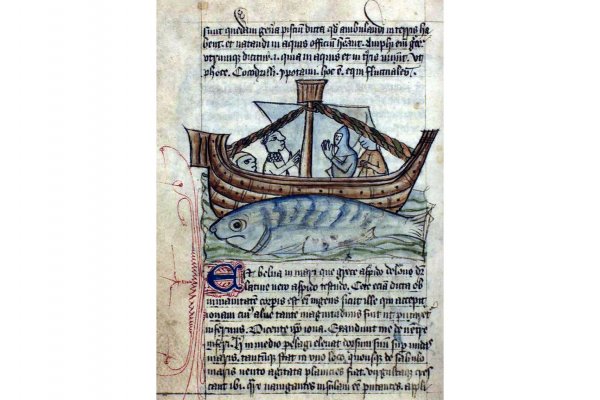 sunt quedam gen̄a pisciū dicta qđ ambulandi in terris ha
bent. et natandi in aquis officiū hēant. Amphi em̄ grec̄
utrumque dicitur .i. quia in aquis et in tr̄is uiuūt. Ut
phoce. Cocodrilli. ypotami. hoc ē. equi fluctuales.
Est belua in mari que grece aspido delone dr̄
latine uero aspido testudo. Cete eciā dicta ob
inmanitatem corpis est en̄ ingens sicut ille qui excepit
ionam cui⁹ alue tante magnitudinis fuit ut putaret
infernus. Dicente ip̄o iona. Exaudiuit me de uentre
inferi. in medio pelagi eleuat dorsum suū sup undas
maris. tantūque stat in uno loco. quousque de sabulo
maris uento agitata planicies fiat. uirgultaque cres
cant ibi. nauigantes insulam eē putantes. appli